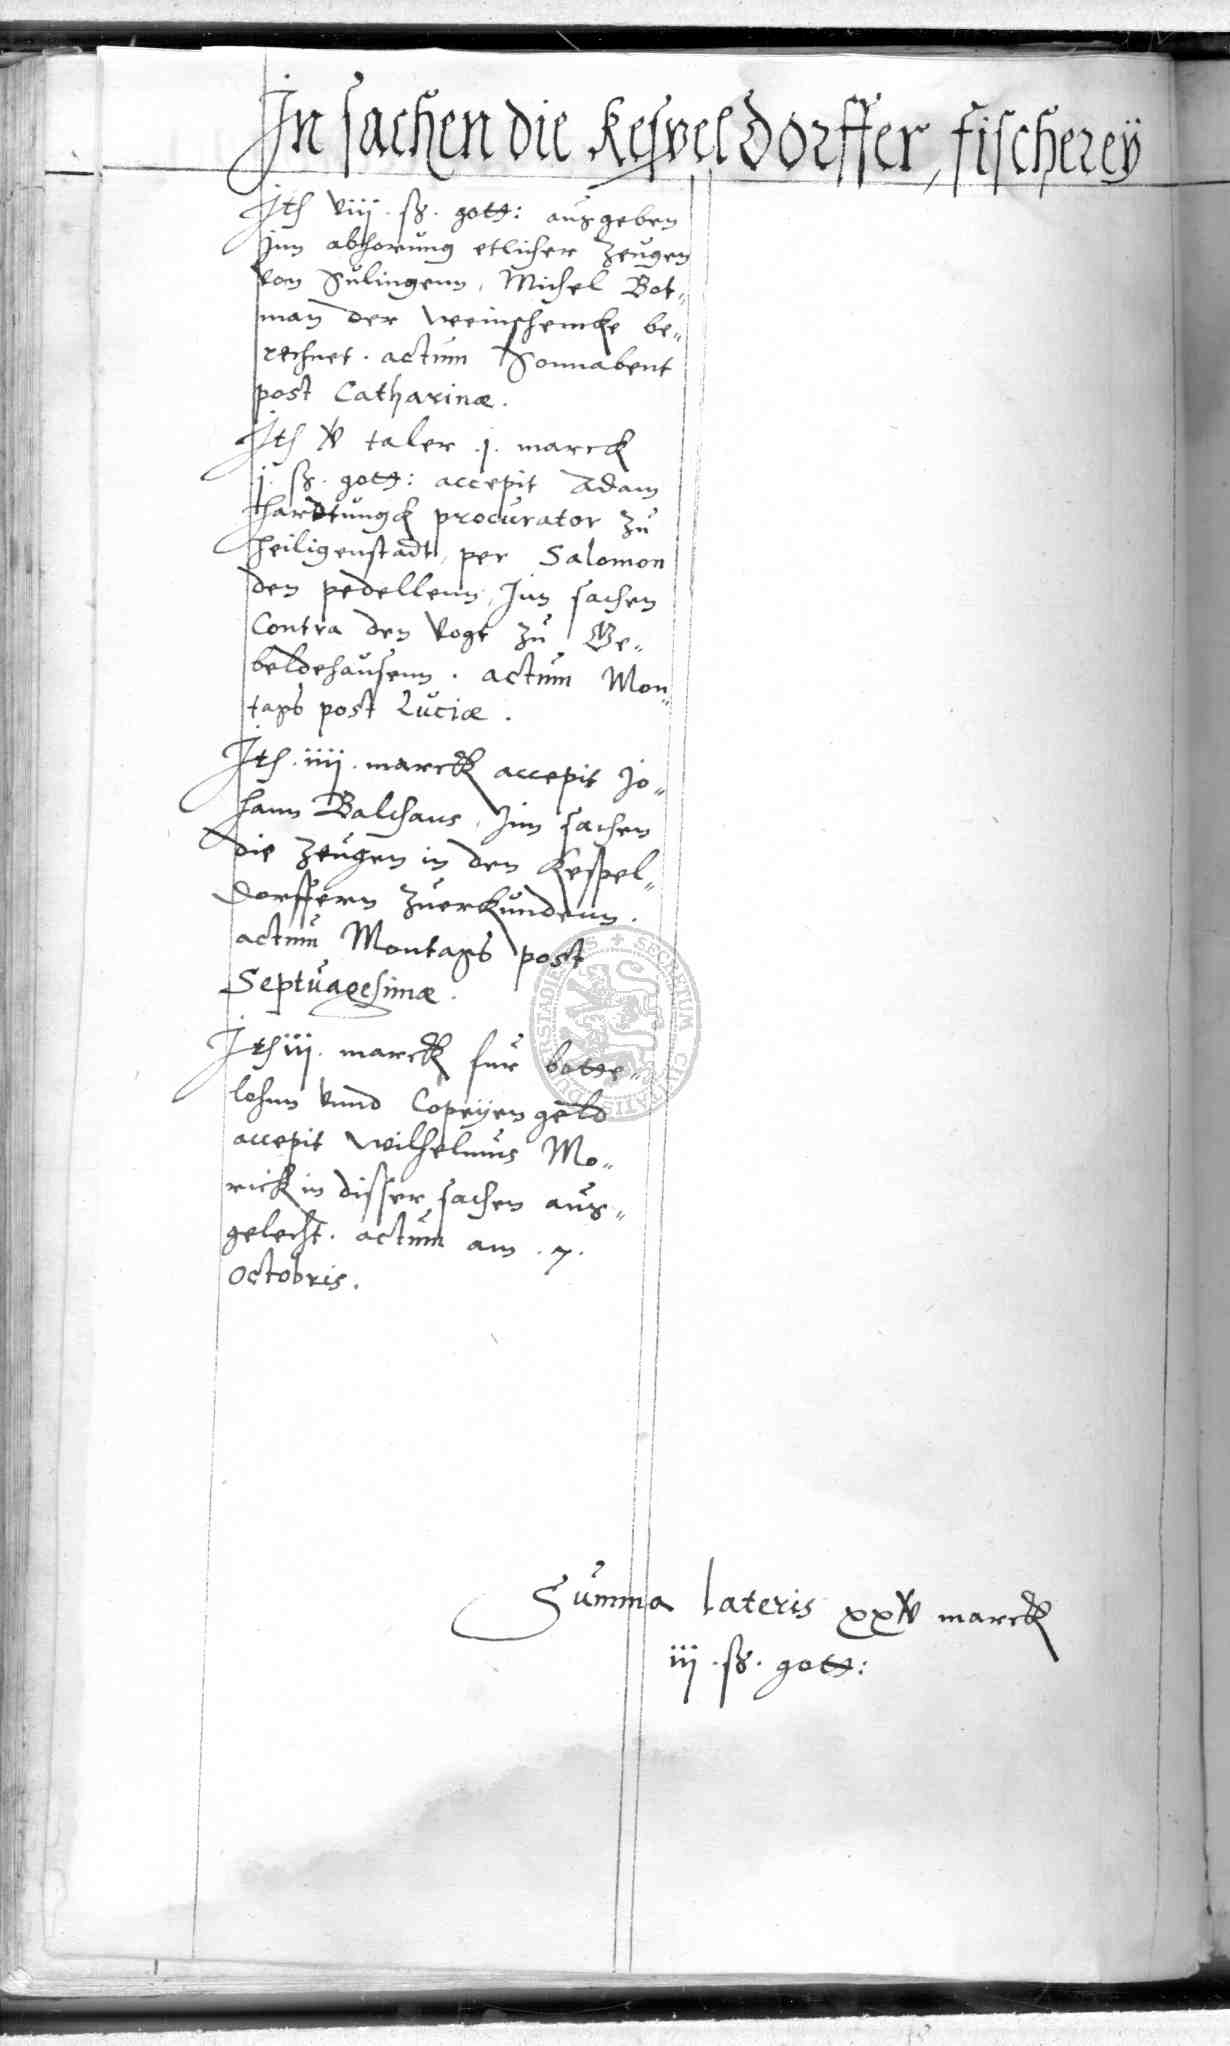 In sachen die Kespeldorffer, fischereÿ
Ith viij. ſß. gott: ausgeben
jnn abhorung etlicher zeugen
von Sulingenn, Michel Bot„
man der weinschencke be„
rechnet. actum Sonnabent
post Catharinæ.
Ith v taler .j. marck
j. ſß. gott: accepit Adam
Hardtungck procurator zu
Heiligenstadt, per Salomon
den pedellenn, Jnn sachen
Contra den vogt zu Ge„
beldehausenn. actum Mon„
tags post Luciæ.
Ith. iiij. marck accepit Jo„
hann Balthaus, Jnn sachen
die zeugen in den Kespel„
dorffern zuerkundenn.
actum Montags post
Septuagesimæ.
Ith iij. marck fur botte„
lohnn vnnd Copeyen geld
accepit wilhelmus Mo„
rick in disser sachen aus„
gelecht. actum am .7.
Octobris.
Summa lateris xxv marck
iij. ſß. gott:
SECRETUM CIVITATIS DUDERSTADIENSIS